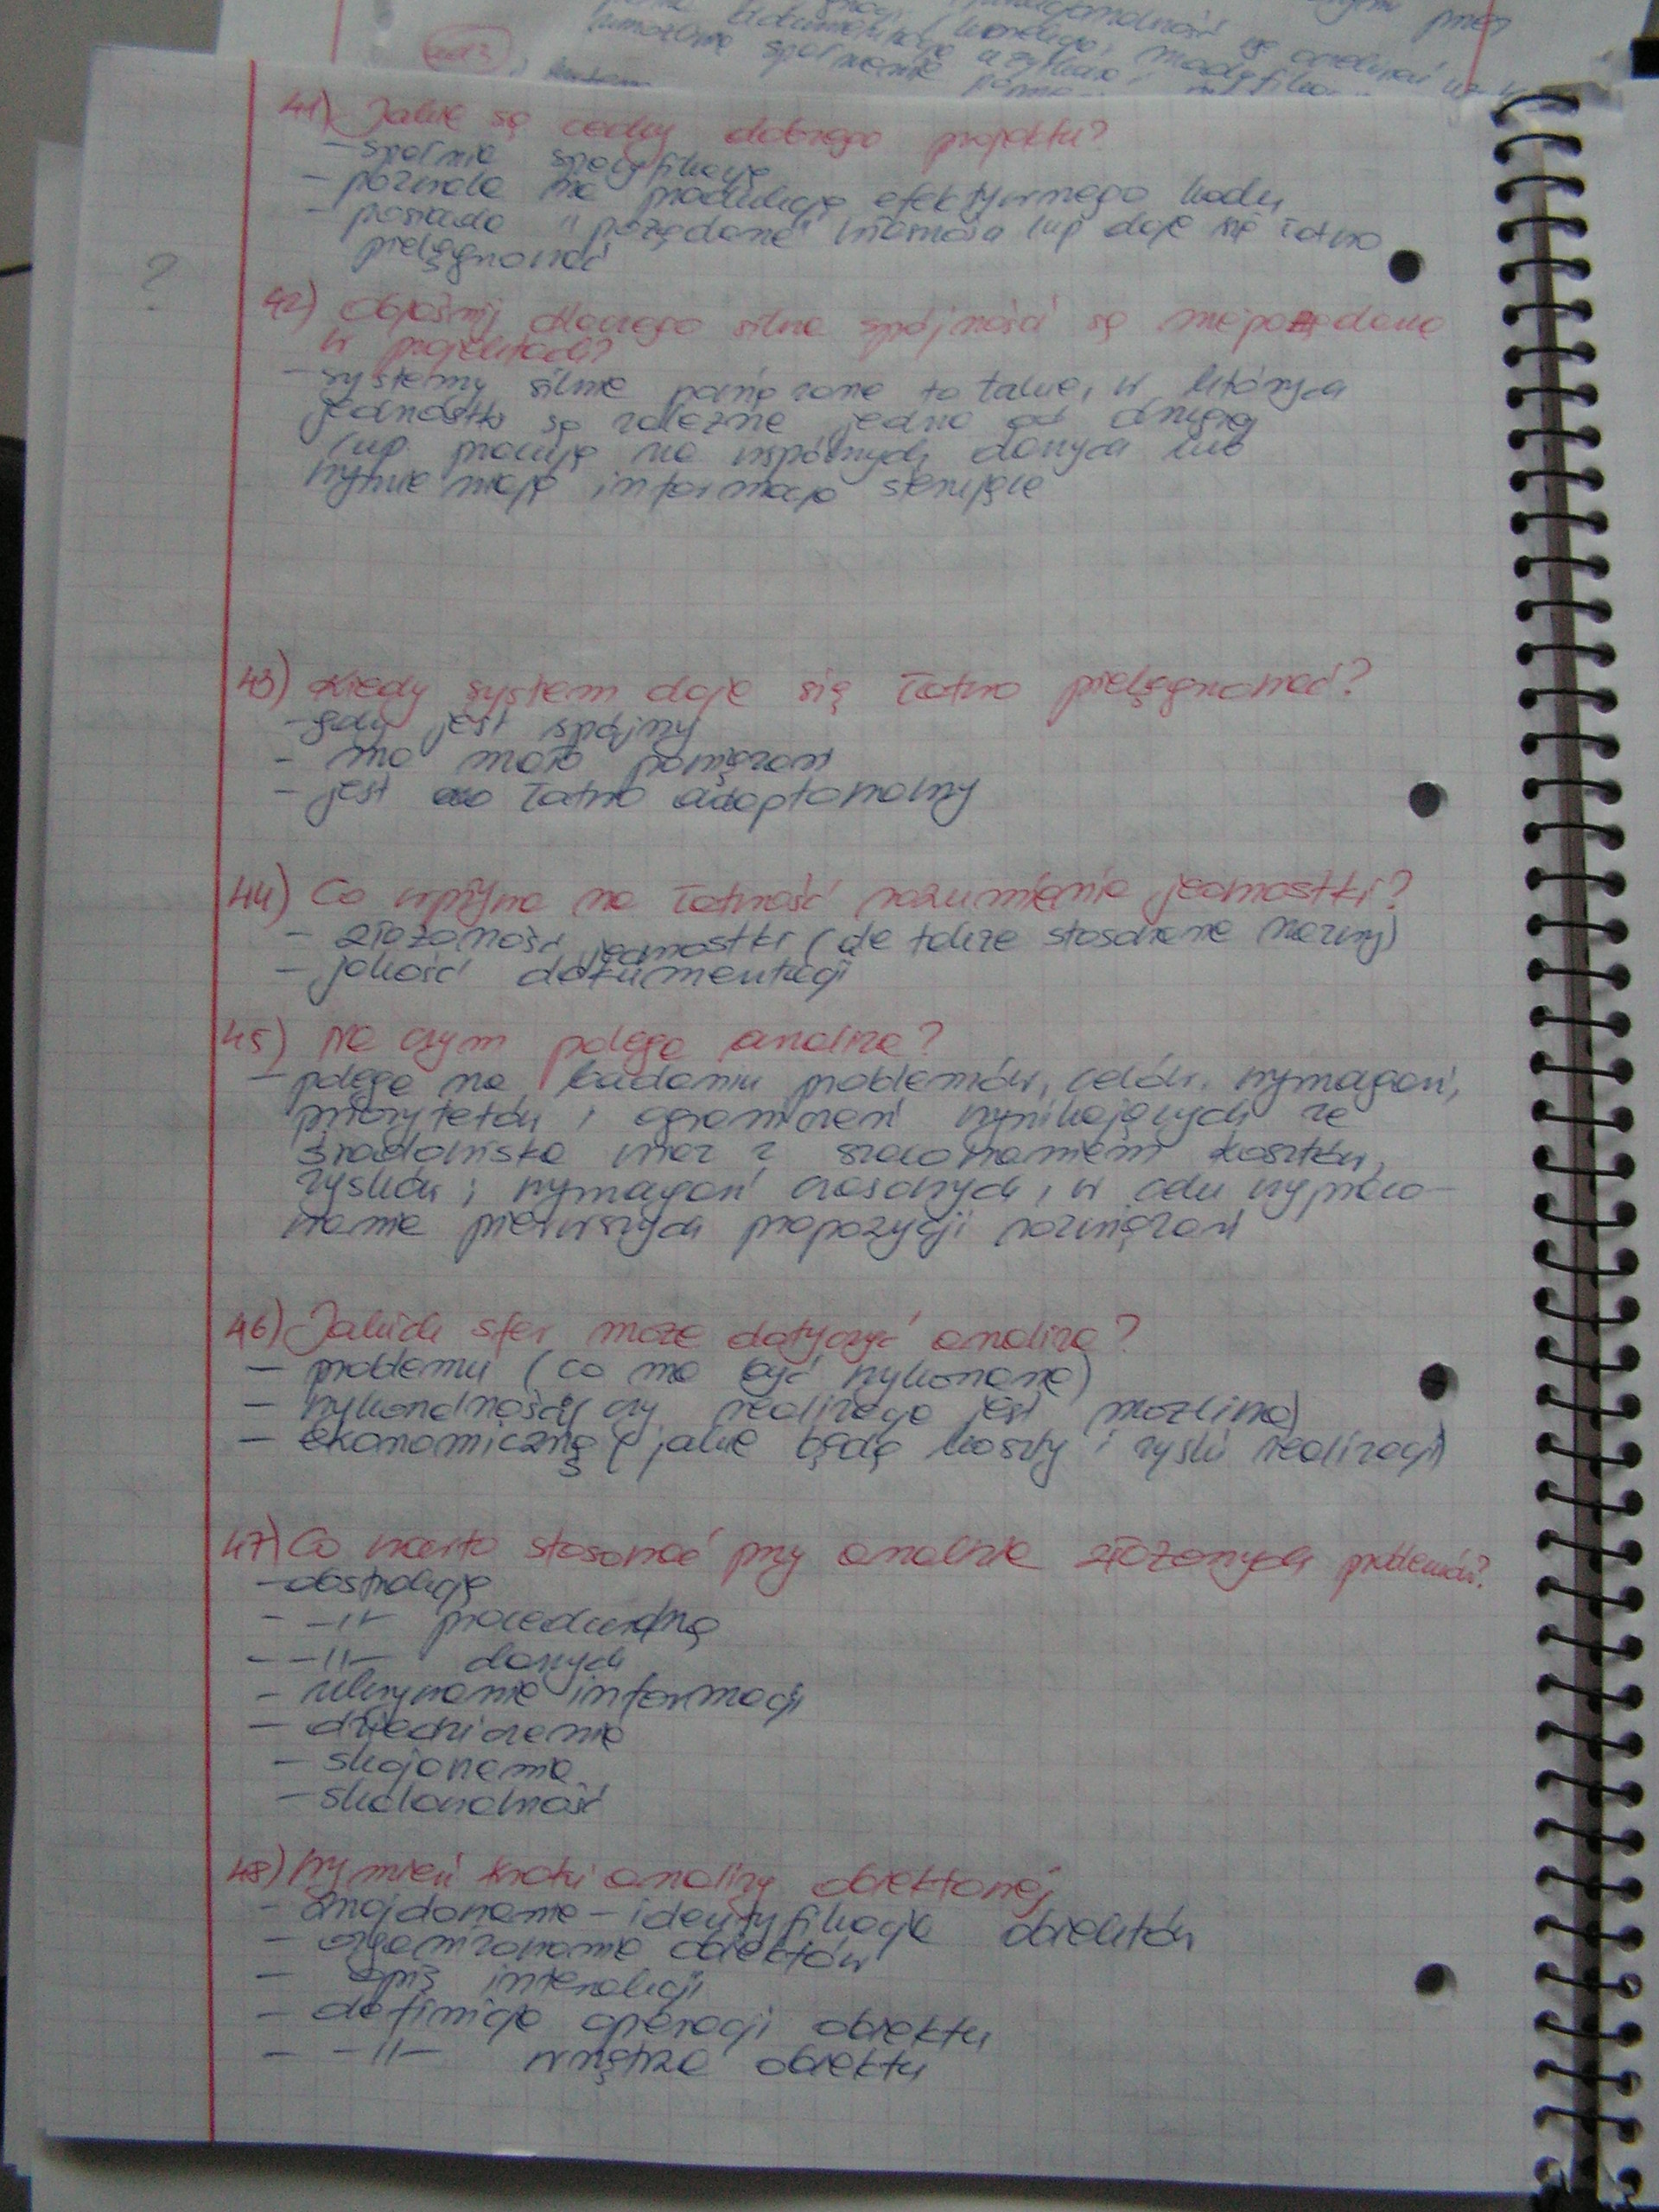 41) Jakie są cechy dobrego projektu?
- spełnia specyfikację
- pozwala na produkcję efektywnego kodu
- posiada "pożądane" własności np daje się łatwo
pielęgnować
?
42) Objaśnij dlaczego silne spójności są niepożądane
w projektach?
- systemy silnie powiązane to takie, w których
jednostki są zależne jedna od drugiej
(np. pracują na wspólnych danych lub
wymieniają informacje sterujące
43) Kiedy system daje się łatwo pielęgnować?
- gdy jest spójny
- ma mało powiązań
- jest łatwo adaptowalny
44) Co wpływa na łatwość rozumienia jednostki?
- złożoność jednostki (ale także stosowane nazwy)
- jakość dokumentacji
45) Na czym polega analiza?
- polega na badaniu problemów, celów, wymagań,
priorytetów i ograniczeń wynikających ze
środowiska wraz z szacowaniem kosztów,
zysków i wymagań czasowych, w celu wypraco-
wania pierwszych propozycji rozwiązań
46) Jakich sfer może dotyczyć analiza?
- problemu (co ma być wykonane)
- wykonalności czy realizacja jest możliwa)
- ekonomiczną (jakie będą koszty i zyski realizacji)
47) Co warto stosować przy analizie złożonych problemów?
- abstrakcję
- -||- proceduralną
- -||- danych
- ukrywanie informacji
- dziedziczenie
- skojarzenia
- skalowalność
48) Wymień kroki analizy obiektowej
- znajdowanie - identyfikacja obiektów
- organizowanie obiektów
- opis interakcji
- definicja operacji obiektu
- -||- wnętrza obiektu